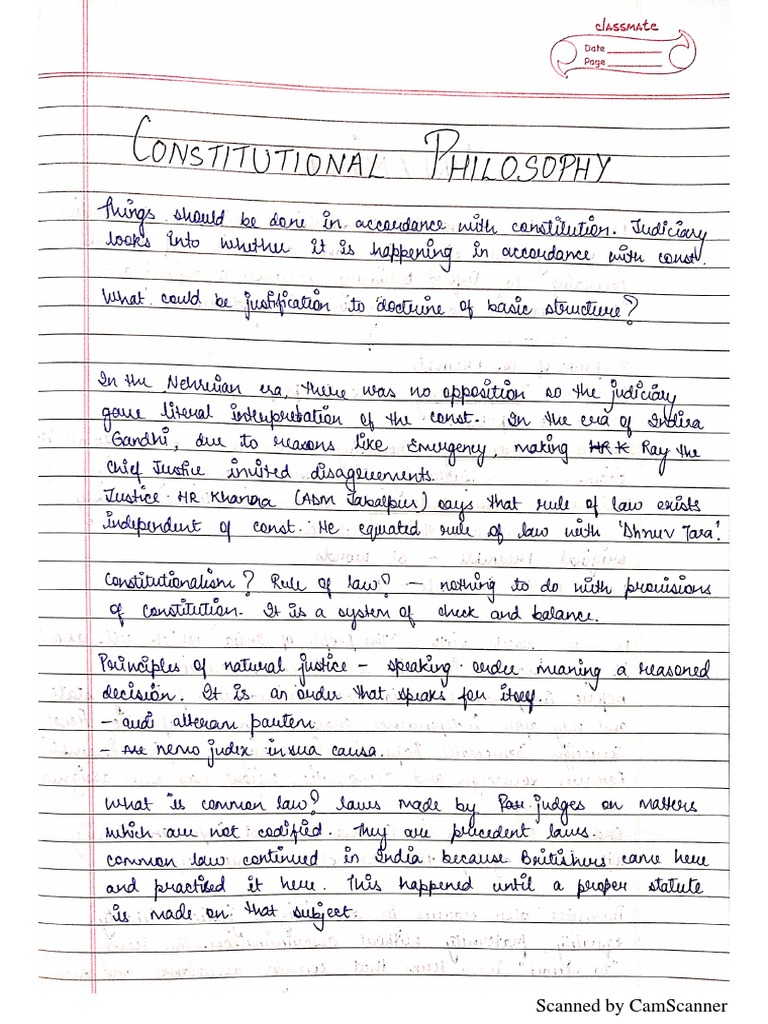 classmate
Date
Page
CONSTITUTIONAL PHILOSOPHY
Things should be done in accordance with constitution. Judiciary
looks into whether it is happening in accordance with const.
What could be justification to doctrine of basic structure?
In the Nehruvian era, there was no opposition so the judiciary
gave literal interpretation of the const. In the era of Indira
Gandhi, due to reasons like Emergency, making HR K Ray the
Chief Justice invited disagreements.
Justice HR Khanna (ADM Jabalpur) says that rule of law exists
independent of const. He equated rule of law with 'Dhruv Tara'.
Constitutionalism? Rule of law? – nothing to do with provisions
of constitution. It is a system of check and balance.
Principles of natural justice – speaking order meaning a reasoned
decision. It is an order that speaks for itself.
– audi alteram partem
– nemo judex in sua causa.
What is common law? laws made by judges on matters
which are not codified. They are precedent laws.
common law continued in India because Britishers came here
and practised it here. This happened until a proper statute
is made on that subject.
Scanned by CamScanner